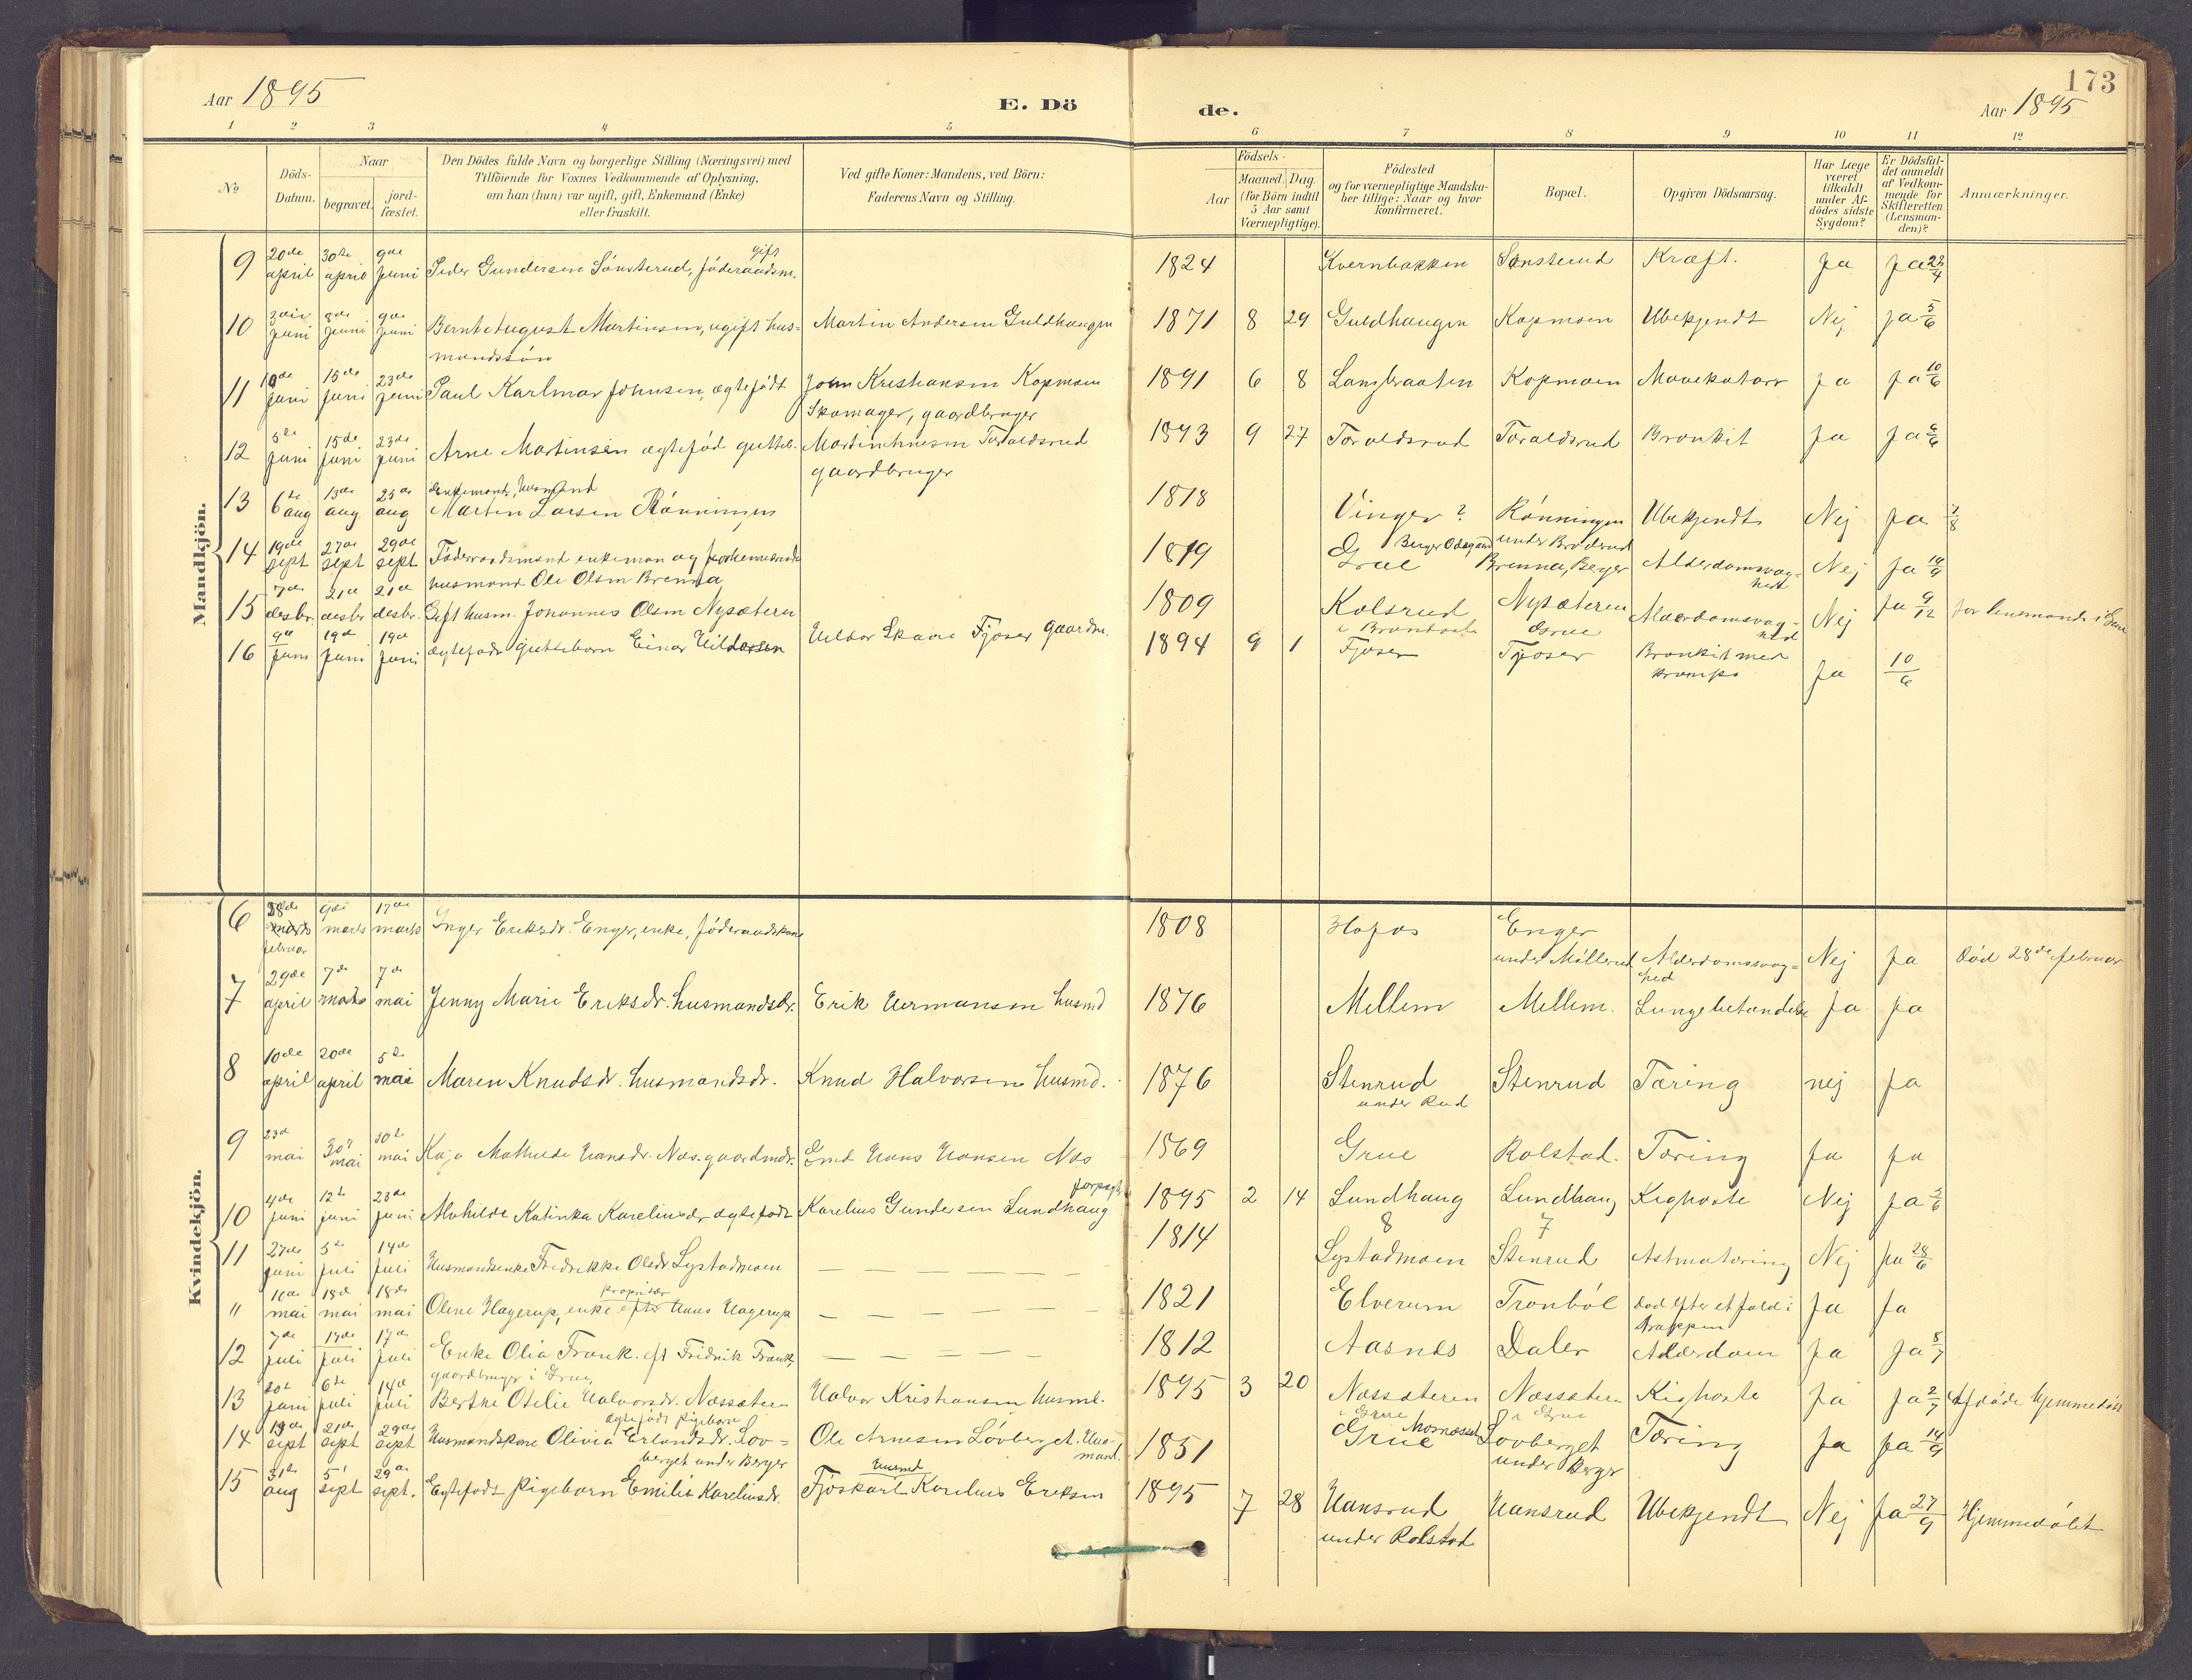 173
Aar 1895
E. Dö de.
Aar 1895
1 2 3 4 5 6 7 8 9 10 11 12
No
Döds-Datum.
Naar
begravet.
jord-fæstet.
Den Dödes fulde Navn og borgerlige Stilling (Næringsvei) med
Tilföiende for Voxnes Vedkommende af Oplysning,
om han (hun) var ugift, gift, Enkemand (Enke)
eller fraskilt.
Ved gifte Koner: Mandens, ved Börn:
Faderens Navn og Stilling.
Födsels-
Aar
Maaned. Dag.
(for Börn indtil
5 Aar samt
Værnepligtige).
Födested
og for værnepligtige Mandska-
ber tillige: Naar og hvor
konfirmeret.
Bopæl.
Opgiven Dödsaarsag.
Har Læge
været
tilkaldt
under Af-
dödes sidste
Sygdom?
Er Dödsfal-
det anmeldt
af Vedkom-
mende for
Skifteretten
(Lensman-
den)?
Anmærkninger.
Mandkjön.
9 20de april 30te april 9de juni Peder Gundersen Sönsterud, föderaadsm. gift 1824 Kvernbakken Sønsterud Kræft. Ja Ja 23/4
10 juni 8de juni 9de juni Bernt August Martinsen, ugift hus= Martin Andersen Guldhaugen 1871 8 29 Guldhaugen Kopmoen Ubekjendt Nej Ja 5/6
mandssön
11 10de juni 15de juni 23de juni Paul Karlmar Johnsen, ægtefödt John Kristiansen Kopmoen 1891 6 8 Langbraaten Kopmoen Mavekatarr Ja Ja 10/6
Skomager, gaardbruger
12 5te juni 15de juni 23de juni Arne Martinsen ægtefød gutteb. Toraldsrud 1893 9 27 Toraldsrud Toraldsrud Bronkit Ja Ja 6/6
gaardbruger
13 6te aug 13de aug 25de aug Enkemand, husmand
Martin Larsen Rönningen 1818 Vinger? Rönningen Ubekjendt Nej Ja 7/8
under Broderud
14 19de sept 27de sept 29de sept Föderaadsmand enkeman og 1819 Grue Berger Odegaard Brenna, Berger Alderdomsvag= Nej Ja 19/9
husmand Ole Olsen Brenna hed
15 7de desbr. 21de desbr 21de desbr. Gift husm. Johannes Olsen Nysæteren 1809 Kolsrud Nysæteren Alderdomsvag= Nej Ja 9/12 for lensmanden i Grue
i Brandval Grue hed
16 9de juni 19de juni 19de juni ægtefödt guttebarn Einar Fjøser Gaardm. 1894 9 1 Fjøser Fjøser Bronkit med Ja 10/6
krampe
Kvindekjön.
6 28de marts 9de marts 17de marts Inger Eriksdr. Enger, enke, föderaadskone 1808 Hofos Enger
februar under Möllerud Alderdomsvag= Nej Ja död 28de februar
hed
7 29de april 7de 7de mai Jenny Marie Eriksdr. husmandsdr. Erik Hermansen husmd 1876 Mellem Mellem. Lungebetændelse Ja Ja
8 10de april 20de april 5te mai Maren Knudsdr. husmandsdr. Knud Halvorsen husmd. 1876 Stenrud Stenrud Tæring nej Ja
under Rud
9 23de mai 30te mai 30te mai Kaja Mathilde Hansdr. Næs. gaardmdr. Gmd Hans Hansen Næs 1869 Grue Rolstad. Tæring Ja Ja
10 4de juni 12te juni 23de juni Mathilde Katinka Kareliusdr ægtefödt Karelius Gundersen Lundhaug forpagt. 1895 2 14 Lundhaug Lundhaug Kighoste Nej Ja 5/6
8 7
11 27de juni 5te juli 14de juli Husmandsenke Fredrikke Olsdr Lystadmoen — — — — — — 1814 Lystadmoen Stenrud Astma tæring Nej Ja 28/6
" mai 18de mai 18de mai Oline Hagerup, enke efter proprietær Hans Hagerup — — — — — 1821 Elverum Tronböl död efter et fald i Ja Ja
trappen
12 7de juli 13de juli 17de juli Enke Olia Frank. eft Fridrik Frank, — — — — — 1812 Aasnes Daler Alderdom Ja Ja 8/7
gaardbruger i Grue
13 30te juni 6te juli 14de juli Berthe Otelie Halvorsdr. Næssæteren Halvor Kristiansen husmd. 1895 3 20 Næssæteren Næssæteren Kighoste Ja Ja 2/7 Afdöde hjemmedöbt
i Grue i Grue
14 13de sept 21de sept 29de sept Husmandskone Olivia Erlandsdr. Löv= Ole Arnesen Lövberget. Hus= 1851 Grue Lövberget Tæring Ja Ja 14/9
berget under Berger mand. under Berger
15 31te aug 5te sept 29de sept. Egtefödt Pigebarn Emilie Kareliusdr. Fjöskarl Karelius Eriksen husmd 1895 7 28 Hansrud Hansrud Ubekjendt Nej Ja 27/9 Hjemmedöbt
under Rolstad